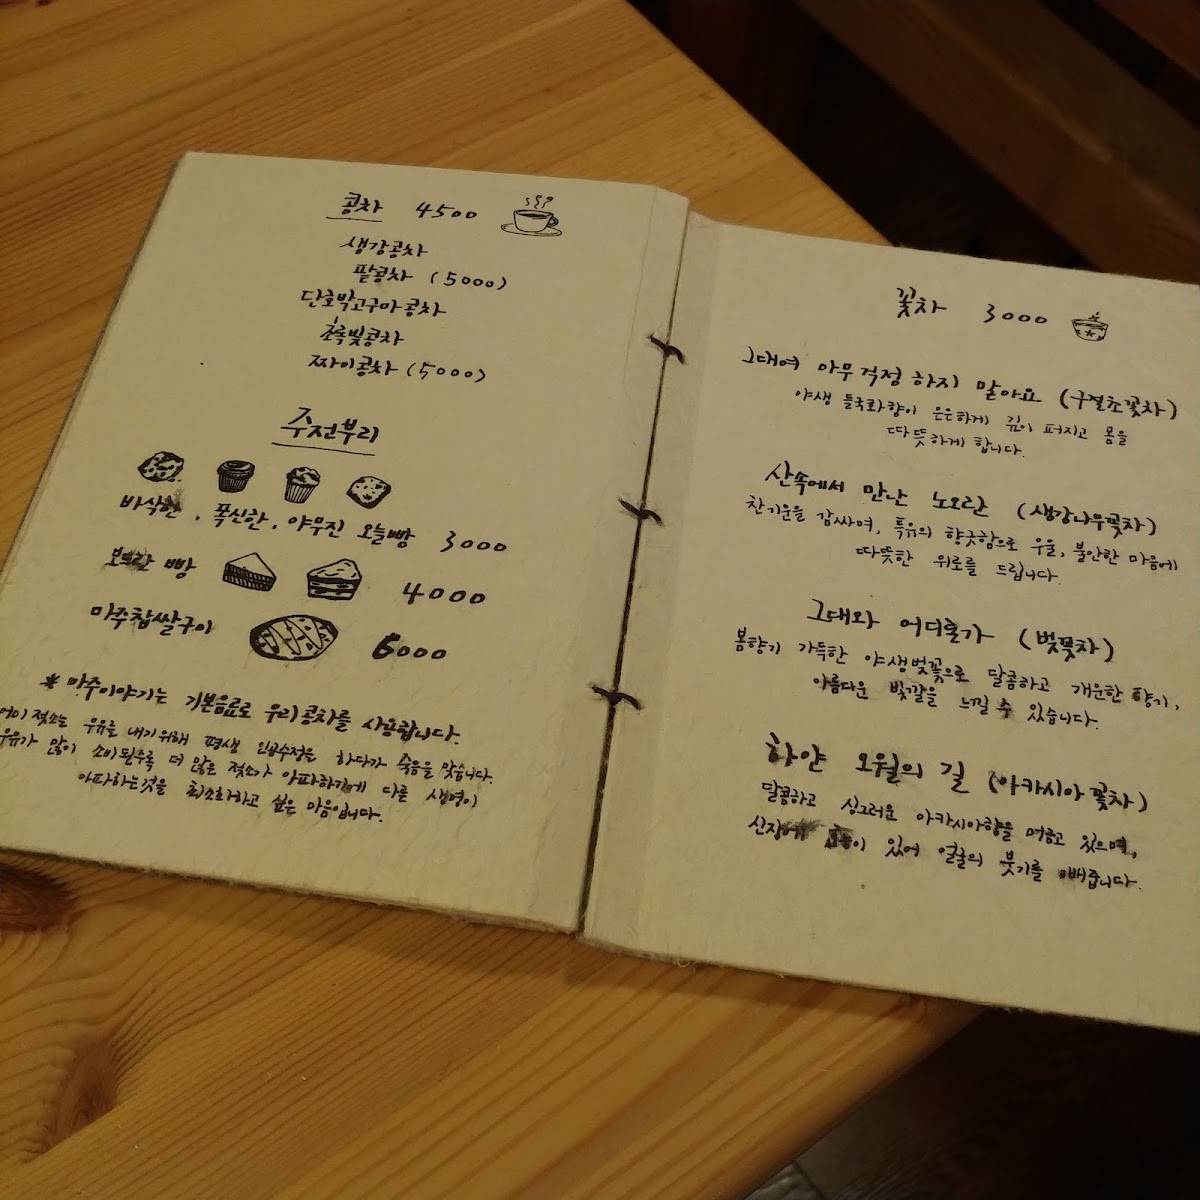 콩차 4500
생강콩차
팥콩차 (5000)
단호박고구마콩차
초록빛콩차
짜이콩차 (5000)
주전부리
바삭한, 폭신한, 야무진 오늘빵 3000
보드란 빵 4000
마주찹쌀구이 6000
* 마주이야기는 기본음료로 우리콩차를 사용합니다.
어미젖소는 우유를 내기위해 평생 인공수정을 하다가 죽음을 맞습니다.
우유가 많이 소비될수록 더 많은 젖소가 아파하기에 다른 생명이
아파하는것을 최소화하고 싶은 마음입니다.
꽃차 3000
그대여 아무 걱정 하지 말아요 (구절초꽃차)
야생 들국화향이 은은하게 깊이 퍼지고 몸을
따뜻하게 합니다.
산속에서 만난 노오란 (생강나무꽃차)
찬기운을 감싸며, 특유의 향긋함으로 우울, 불안한 마음에
따뜻한 위로를 드립니다.
그대와 어디훌가 (벚꽃차)
봄향기 가득한 야생벚꽃으로 달콤하고 개운한 향기,
아름다운 빛깔을 느낄 수 있습니다.
하얀 오월의 길 (아카시아 꽃차)
달콤하고 싱그러운 아카시아향을 머금고 있으며,
신장에 있어 얼굴의 붓기를 빼줍니다.